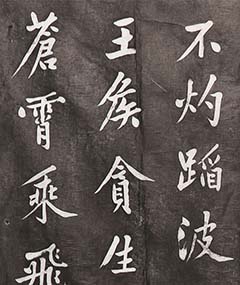 不灼蹈波
王矦貪生
蒼霄乘飛